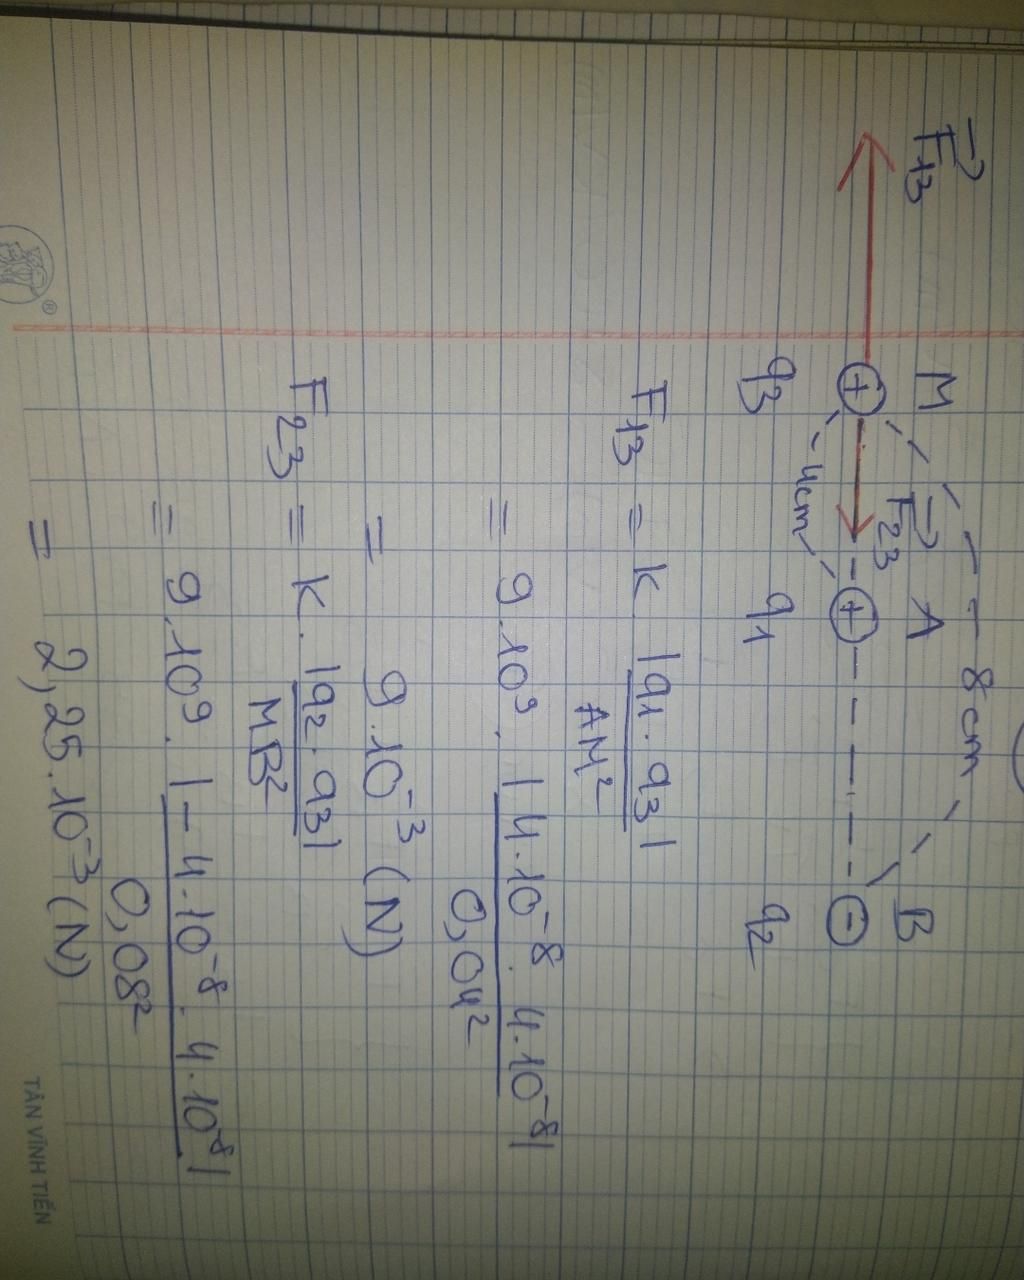 F⃗13 M F⃗23 A 8cm B
q3 4cm q1 q2
F13 = k |q1.q3|
AM²
= 9.10⁹. |4.10⁻⁸. 4.10⁻⁸|
0,04²
= 9.10⁻³ (N)
F23 = k. |q2.q3|
MB²
= 9.10⁹. |-4.10⁻⁸. 4.10⁻⁸|
0,08²
= 2,25.10⁻³ (N)
®
TÂN VĨNH TIẾN